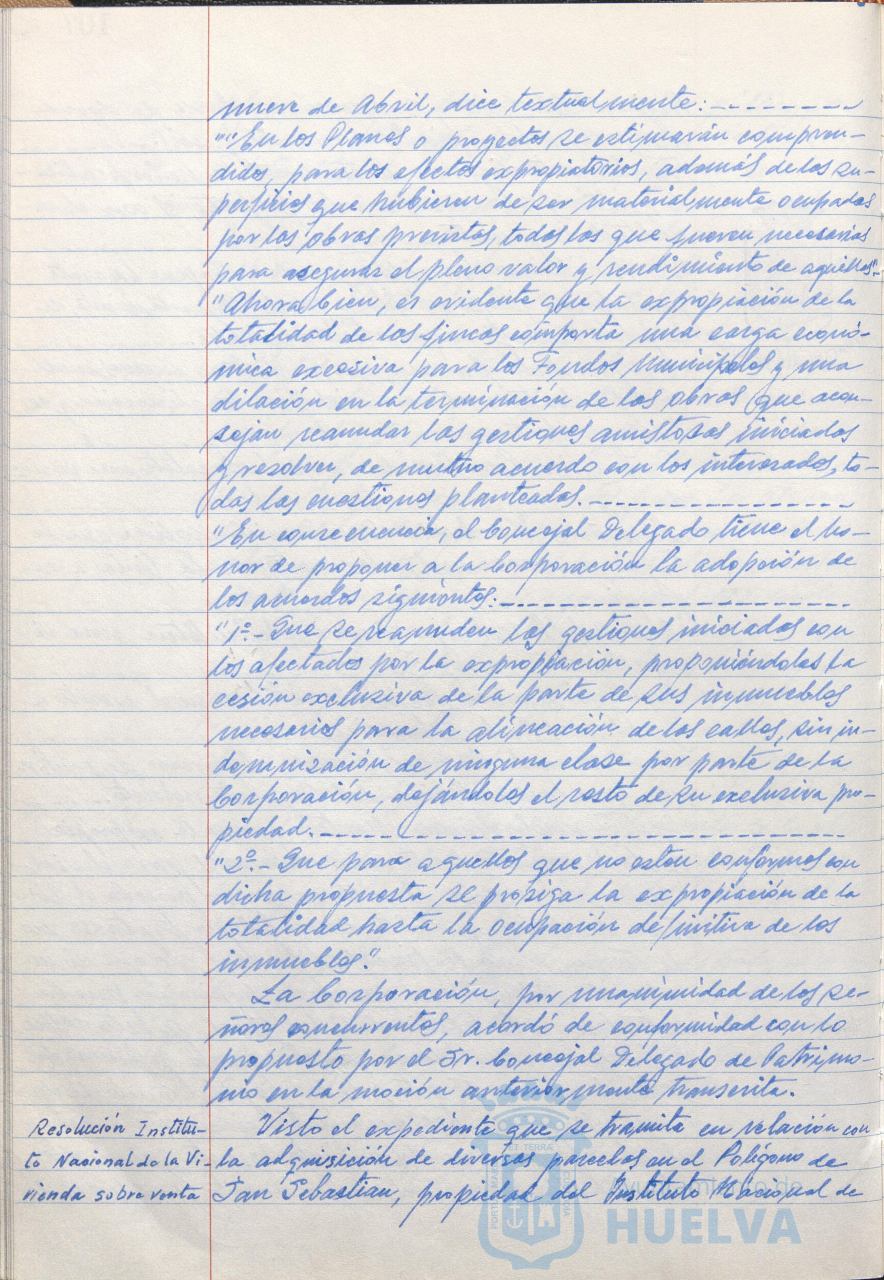 nueve de Abril, dice textualmente: - - - - - - - -
""En los Planos o proyectos se estimarán compren-
didos, para los efectos expropiatorios, además de las su-
perficies que hubieren de ser materialmente ocupadas
por las obras previstas, todas las que fueren necesarias
para asegurar el pleno valor y rendimiento de aquéllas".-
"Ahora bien, es evidente que la expropiación de la
totalidad de las fincas comporta una carga econó-
mica excesiva para los Fondos Municipales y una
dilación en la terminación de las obras que acon-
sejan reanudar las gestiones amistosas iniciadas
y resolver, de mutuo acuerdo con los interesados, to-
das las cuestiones planteadas. - - - - - - - - - -
"En consecuencia, el Concejal Delegado tiene el ho-
nor de proponer a la Corporación la adopción de
los acuerdos siguientes: - - - - - - - - - - - - - -
"1º.- Que se reanuden las gestiones iniciadas con
los afectados por la expropiación, proponiéndoles la
cesión exclusiva de la parte de sus inmuebles
necesarios para la alineación de las calles, sin in-
demnización de ninguna clase por parte de la
Corporación, dejándoles el resto de su exclusiva pro-
piedad. - - - - - - - - - - - - - - - - - - - - - -
"2º.- Que para aquellos que no esten conformes con
dicha propuesta se prosiga la expropiación de la
totalidad hasta la ocupación definitiva de los
inmuebles."
La Corporación, por unanimidad de los se-
ñores concurrentes, acordó de conformidad con lo
propuesto por el Sr. Concejal Delegado de Patrimo-
nio en la moción anteriormente transcrita.
Resolución Institu-
to Nacional de la Vi-
vienda sobre venta
Visto el expediente que se tramita en relación con
la adquisición de diversas parcelas en el Polígono de
San Sebastian, propiedad del Instituto Nacional de
Ayuntamiento de
HUELVA